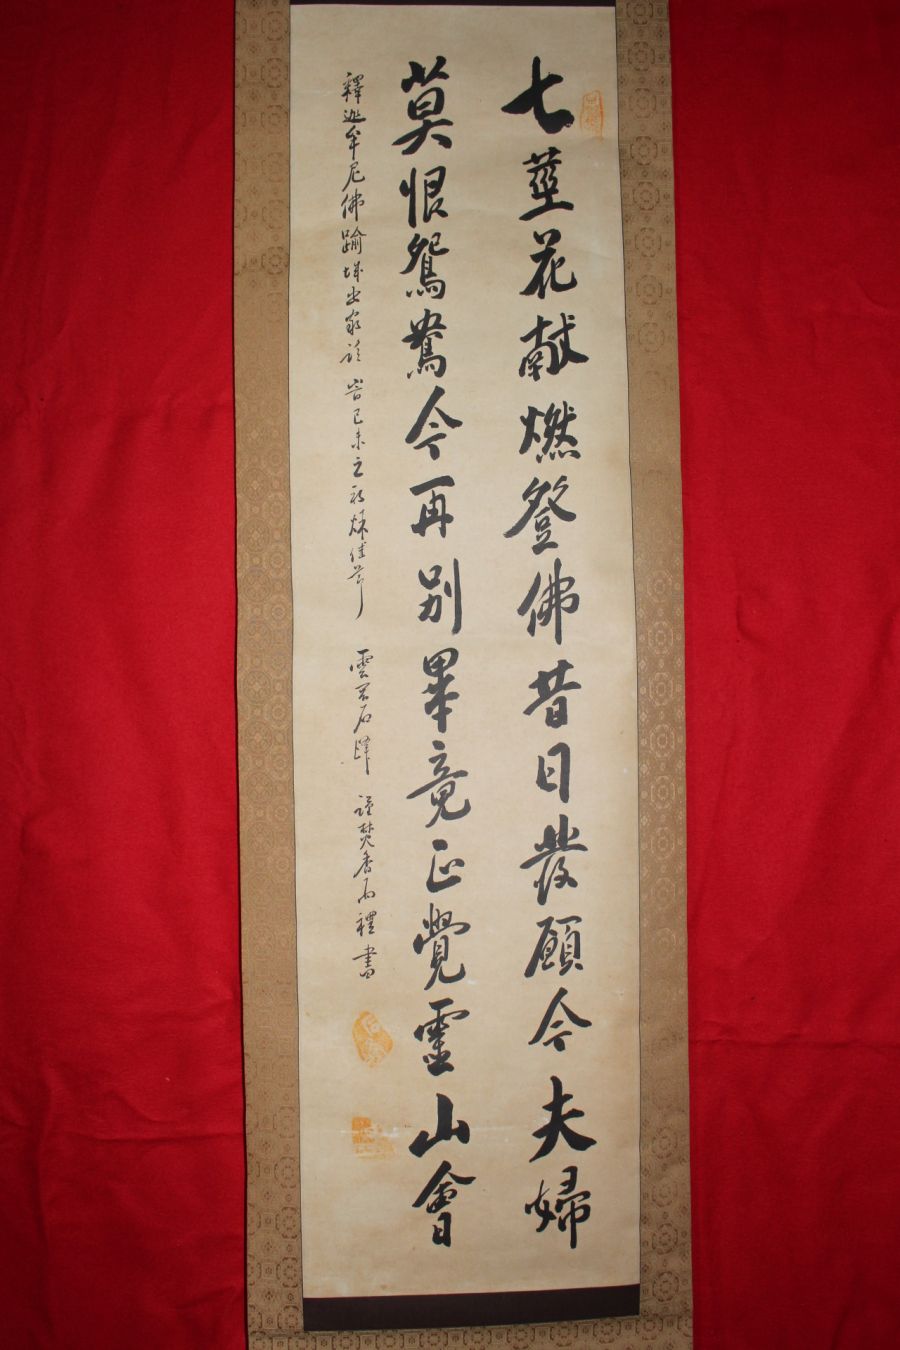 七莖花献燃登佛昔日發願今夫婦
莫恨鴛鴦今再別畢竟正覺靈山會
釋迦牟尼佛踰城出家 己未之 佳節 雲 石 焚香 禮書